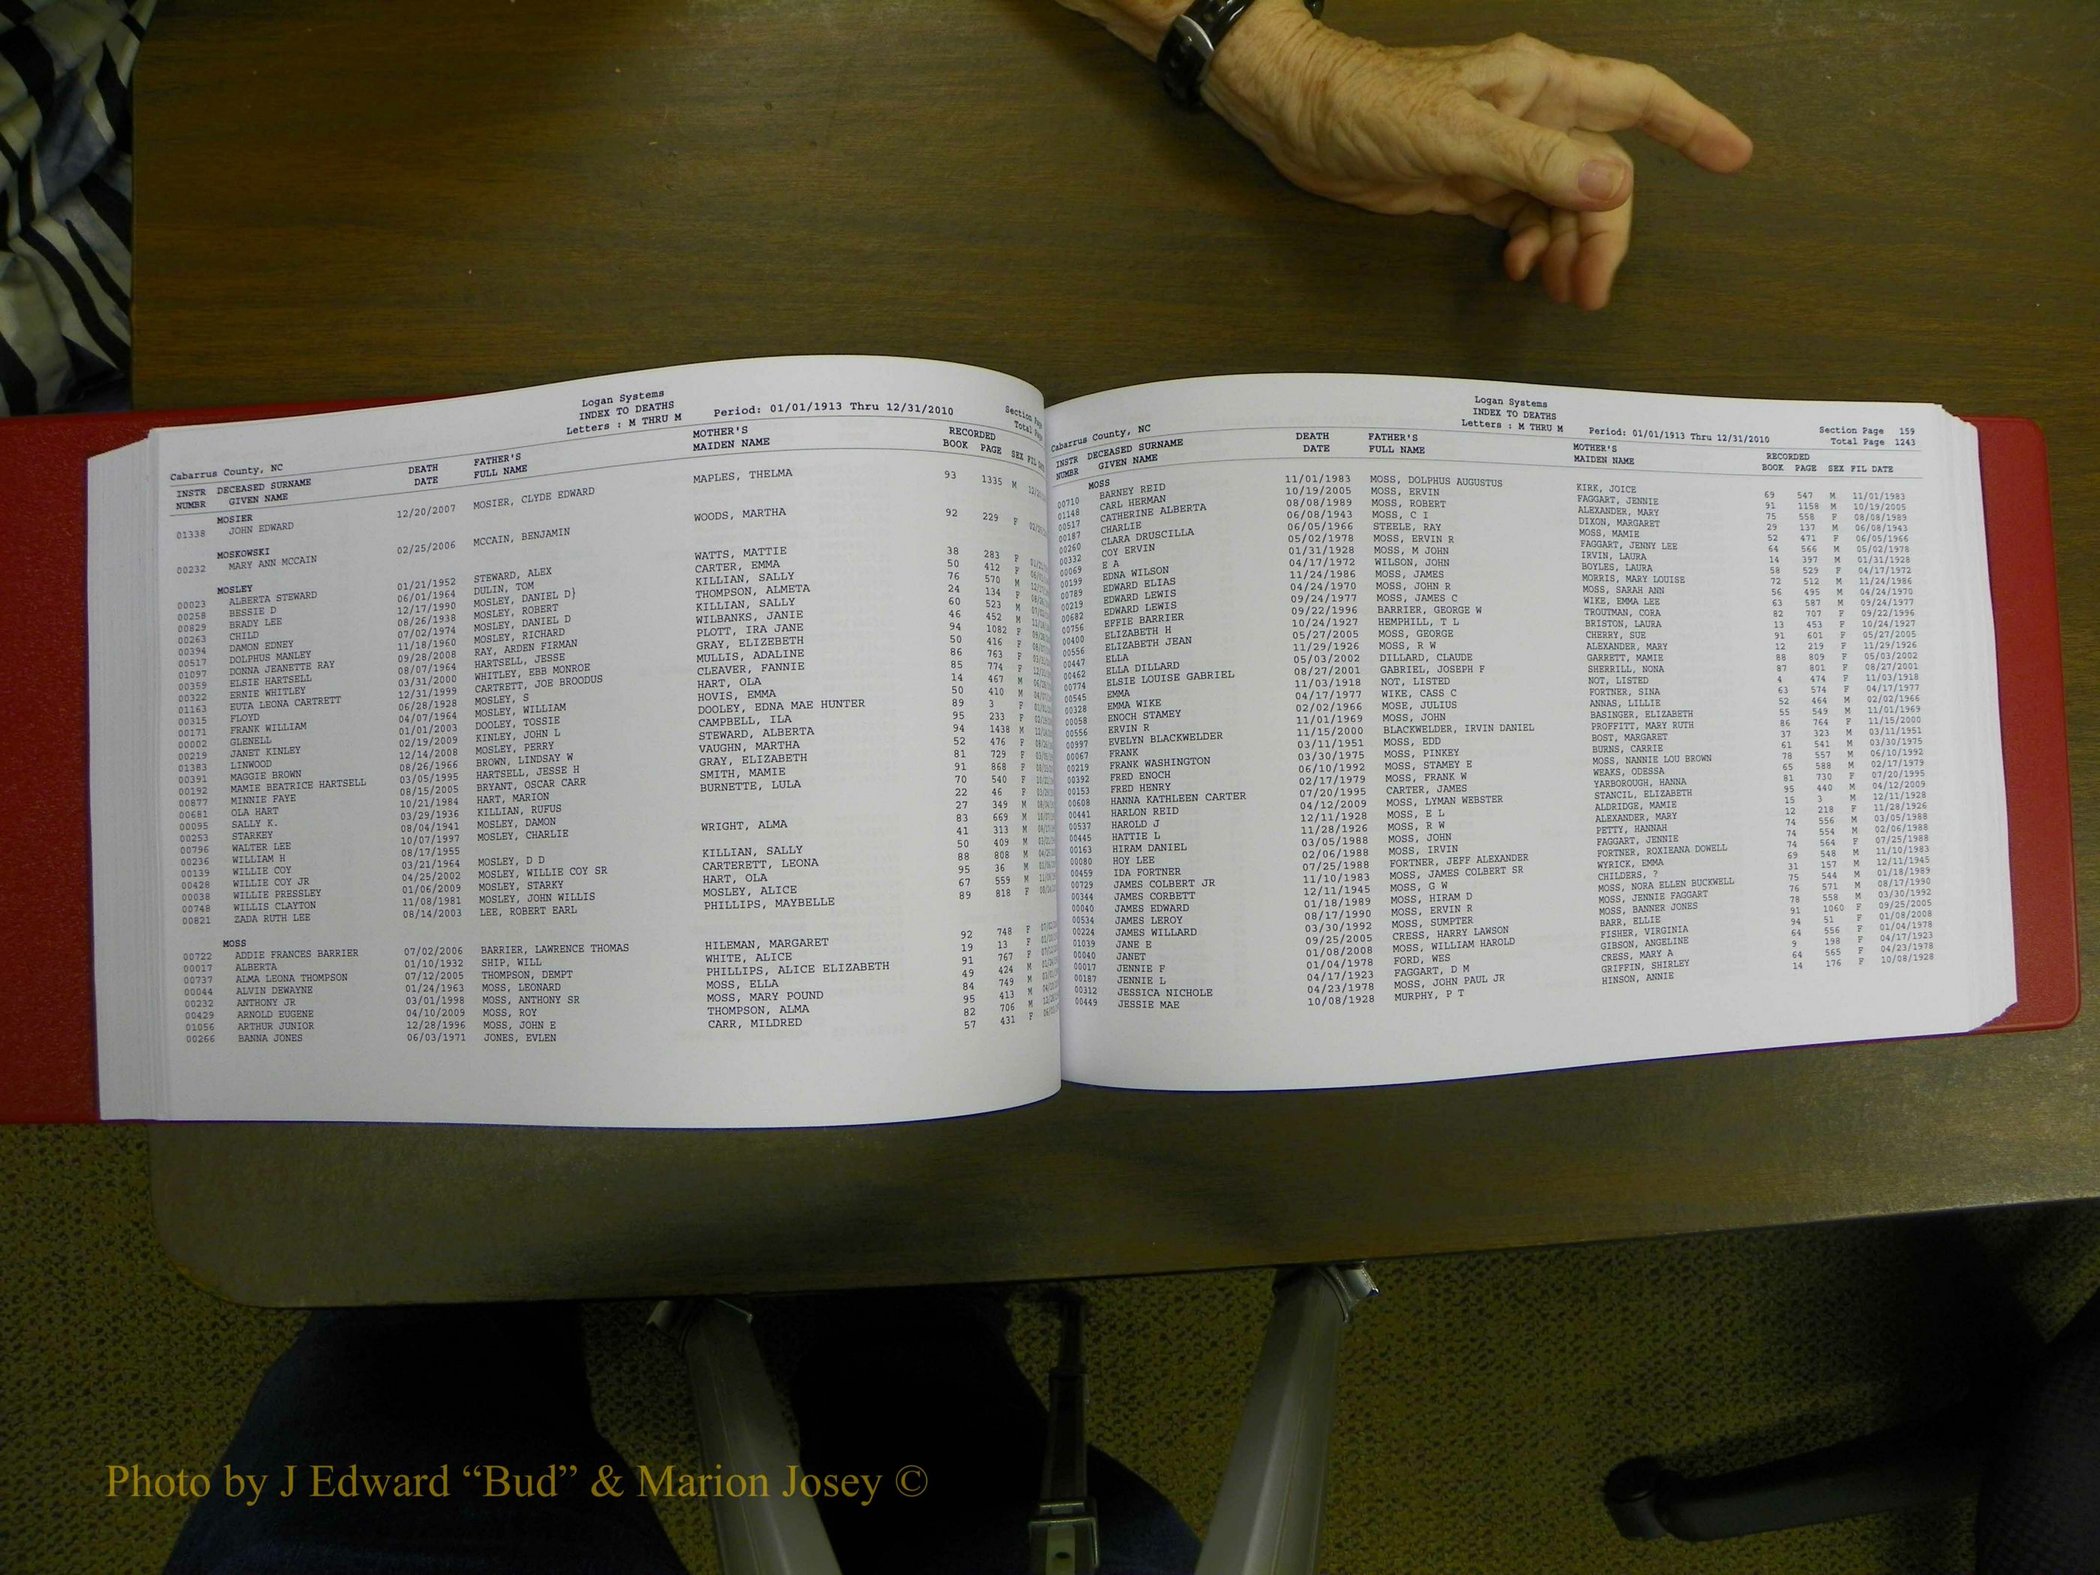 Logan Systems
INDEX TO DEATHS
Letters : M THRU M Period: 01/01/1913 Thru 12/31/2010 Section
Cabarrus County, NC Total
INSTR DECEASED SURNAME DEATH FATHER'S MOTHER'S RECORDED
NUMBR GIVEN NAME DATE FULL NAME MAIDEN NAME BOOK PAGE SEX FIL
MOSIER
01338 JOHN EDWARD 12/20/2007 MOSIER, CLYDE EDWARD MAPLES, THELMA 93 1335 M
MOSKOWSKI
00232 MARY ANN MCCAIN 02/25/2006 MCCAIN, BENJAMIN WOODS, MARTHA 92 229 F
MOSLEY
00023 ALBERTA STEWARD 01/21/1952 STEWARD, ALEX WATTS, MATTIE 38 283 F
00258 BESSIE D 06/01/1964 DULIN, TOM CARTER, EMMA 50 412 F
00829 BRADY LEE 12/17/1990 MOSLEY, DANIEL D} KILLIAN, SALLY 76 570 M
00263 CHILD 08/26/1938 MOSLEY, ROBERT THOMPSON, ALMETA 24 134 F
00394 DAMON EDNEY 07/02/1974 MOSLEY, DANIEL D KILLIAN, SALLY 60 523 M
00517 DOLPHUS MANLEY 11/18/1960 MOSLEY, RICHARD WILBANKS, JANIE 46 452 M
01097 DONNA JEANETTE RAY 09/28/2008 RAY, ARDEN FIRMAN PLOTT, IRA JANE 94 1082 F
00359 ELSIE HARTSELL 08/07/1964 HARTSELL, JESSE GRAY, ELIZEBETH 50 416 F
00322 ERNIE WHITLEY 03/31/2000 WHITLEY, EBB MONROE MULLIS, ADALINE 86 763 F
01163 EUTA LEONA CARTRETT 12/31/1999 CARTRETT, JOE BROODUS CLEAVER, FANNIE 85 774 F
00315 FLOYD 06/28/1928 MOSLEY, S HART, OLA 14 467 M
00171 FRANK WILLIAM 04/07/1964 MOSLEY, WILLIAM HOVIS, EMMA 50 410 M
00002 GLENELL 01/01/2003 DOOLEY, TOSSIE DOOLEY, EDNA MAE HUNTER 89 3 F
00219 JANET KINLEY 02/19/2009 KINLEY, JOHN L CAMPBELL, ILA 95 233 F
01383 LINWOOD 12/14/2008 MOSLEY, PERRY STEWARD, ALBERTA 94 1438 M
00391 MAGGIE BROWN 08/26/1966 BROWN, LINDSAY W VAUGHN, MARTHA 52 476 F
00192 MAMIE BEATRICE HARTSELL 03/05/1995 HARTSELL, JESSE H GRAY, ELIZABETH 81 729 F
00877 MINNIE FAYE 08/15/2005 BRYANT, OSCAR CARR SMITH, MAMIE 91 868 F
00681 OLA HART 10/21/1984 HART, MARION BURNETTE, LULA 70 540 F
00095 SALLY K. 03/29/1936 KILLIAN, RUFUS 22 46 F
00253 STARKEY 08/04/1941 MOSLEY, DAMON 27 349 M
00796 WALTER LEE 10/07/1997 MOSLEY, CHARLIE WRIGHT, ALMA 83 669 M
00236 WILLIAM H 08/17/1955 41 313 M
00139 WILLIE COY 03/21/1964 MOSLEY, D D KILLIAN, SALLY 50 409 M
00428 WILLIE COY JR 04/25/2002 MOSLEY, WILLIE COY SR CARTERETT, LEONA 88 808 M
00038 WILLIE PRESSLEY 01/06/2009 MOSLEY, STARKY HART, OLA 95 36 M
00748 WILLIS CLAYTON 11/08/1981 MOSLEY, JOHN WILLIS MOSLEY, ALICE 67 559 M
00821 ZADA RUTH LEE 08/14/2003 LEE, ROBERT EARL PHILLIPS, MAYBELLE 89 818 F
MOSS
00722 ADDIE FRANCES BARRIER 07/02/2006 BARRIER, LAWRENCE THOMAS HILEMAN, MARGARET 92 748 F
00017 ALBERTA 01/10/1932 SHIP, WILL WHITE, ALICE 19 13 F
00737 ALMA LEONA THOMPSON 07/12/2005 THOMPSON, DEMPT PHILLIPS, ALICE ELIZABETH 91 767 F
00044 ALVIN DEWAYNE 01/24/1963 MOSS, LEONARD MOSS, ELLA 49 424 M
00232 ANTHONY JR 03/01/1998 MOSS, ANTHONY SR MOSS, MARY POUND 84 749 M
00429 ARNOLD EUGENE 04/10/2009 MOSS, ROY THOMPSON, ALMA 95 413 M
01056 ARTHUR JUNIOR 12/28/1996 MOSS, JOHN E CARR, MILDRED 82 706 M
00266 BANNA JONES 06/03/1971 JONES, EVLEN 57 431 F
Logan Systems
INDEX TO DEATHS
Letters : M THRU M Period: 01/01/1913 Thru 12/31/2010 Section Page 159
Cabarrus County, NC Total Page 1243
INSTR DECEASED SURNAME DEATH FATHER'S MOTHER'S RECORDED
NUMBR GIVEN NAME DATE FULL NAME MAIDEN NAME BOOK PAGE SEX FIL DATE
MOSS
00710 BARNEY REID 11/01/1983 MOSS, DOLPHUS AUGUSTUS KIRK, JOICE 69 547 M 11/01/1983
01148 CARL HERMAN 10/19/2005 MOSS, ERVIN FAGGART, JENNIE 91 1158 M 10/19/2005
00517 CATHERINE ALBERTA 08/08/1989 MOSS, ROBERT ALEXANDER, MARY 75 558 F 08/08/1989
00187 CHARLIE 06/08/1943 MOSS, C I DIXON, MARGARET 29 137 M 06/08/1943
00260 CLARA DRUSCILLA 06/05/1966 STEELE, RAY MOSS, MAMIE 52 471 F 06/05/1966
00332 COY ERVIN 05/02/1978 MOSS, ERVIN R FAGGART, JENNY LEE 64 566 M 05/02/1978
00069 E A 01/31/1928 MOSS, M JOHN IRVIN, LAURA 14 397 M 01/31/1928
00199 EDNA WILSON 04/17/1972 WILSON, JOHN BOYLES, LAURA 58 529 F 04/17/1972
00789 EDWARD ELIAS 11/24/1986 MOSS, JAMES MORRIS, MARY LOUISE 72 512 M 11/24/1986
00219 EDWARD LEWIS 04/24/1970 MOSS, JOHN R MOSS, SARAH ANN 56 495 M 04/24/1970
00682 EDWARD LEWIS 09/24/1977 MOSS, JAMES C WIKE, EMMA LEE 63 587 M 09/24/1977
00756 EFFIE BARRIER 09/22/1996 BARRIER, GEORGE W TROUTMAN, CORA 82 707 F 09/22/1996
00400 ELIZABETH H 10/24/1927 HEMPHILL, T L BRISTON, LAURA 13 453 F 10/24/1927
00556 ELIZABETH JEAN 05/27/2005 MOSS, GEORGE CHERRY, SUE 91 601 F 05/27/2005
00447 ELLA 11/29/1926 MOSS, R W ALEXANDER, MARY 12 219 F 11/29/1926
00462 ELLA DILLARD 05/03/2002 DILLARD, CLAUDE GARRETT, MAMIE 88 809 F 05/03/2002
00774 ELSIE LOUISE GABRIEL 08/27/2001 GABRIEL, JOSEPH F SHERRILL, NONA 87 801 F 08/27/2001
00545 EMMA 11/03/1918 NOT, LISTED NOT, LISTED 4 474 F 11/03/1918
00328 EMMA WIKE 04/17/1977 WIKE, CASS C FORTNER, SINA 63 574 F 04/17/1977
00058 ENOCH STAMEY 02/02/1966 MOSE, JULIUS ANNAS, LILLIE 52 464 M 02/02/1966
00556 ERVIN R 11/01/1969 MOSS, JOHN BASINGER, ELIZABETH 55 549 M 11/01/1969
00997 EVELYN BLACKWELDER 11/15/2000 BLACKWELDER, IRVIN DANIEL PROFFITT, MARY RUTH 86 764 F 11/15/2000
00067 FRANK 03/11/1951 MOSS, EDD BOST, MARGARET 37 323 M 03/11/1951
00219 FRANK WASHINGTON 03/30/1975 MOSS, PINKEY BURNS, CARRIE 61 541 M 03/30/1975
00392 FRED ENOCH 06/10/1992 MOSS, STAMEY E MOSS, NANNIE LOU BROWN 78 557 M 06/10/1992
00153 FRED HENRY 02/17/1979 MOSS, FRANK W WEAKS, ODESSA 65 588 M 02/17/1979
00608 HANNA KATHLEEN CARTER 07/20/1995 CARTER, JAMES YARBOROUGH, HANNA 81 730 F 07/20/1995
00441 HARLON REID 04/12/2009 MOSS, LYMAN WEBSTER STANCIL, ELIZABETH 95 440 M 04/12/2009
00537 HAROLD J 12/11/1928 MOSS, E L ALDRIDGE, MAMIE 15 3 M 12/11/1928
00445 HATTIE L 11/28/1926 MOSS, R W ALEXANDER, MARY 12 218 F 11/28/1926
00163 HIRAM DANIEL 03/05/1988 MOSS, JOHN PETTY, HANNAH 74 556 M 03/05/1988
00080 HOY LEE 02/06/1988 MOSS, IRVIN FAGGART, JENNIE 74 554 M 02/06/1988
00459 IDA FORTNER 07/25/1988 FORTNER, JEFF ALEXANDER FORTNER, ROXIEANA DOWELL 74 564 F 07/25/1988
00729 JAMES COLBERT JR 11/10/1983 MOSS, JAMES COLBERT SR WYRICK, EMMA 69 548 M 11/10/1983
00344 JAMES CORBETT 12/11/1945 MOSS, G W CHILDERS, ? 31 157 M 12/11/1945
00040 JAMES EDWARD 01/18/1989 MOSS, HIRAM D MOSS, NORA ELLEN BUCKWELL 75 544 M 01/18/1989
00534 JAMES LEROY 08/17/1990 MOSS, ERVIN R MOSS, JENNIE FAGGART 76 571 M 08/17/1990
00224 JAMES WILLARD 03/30/1992 MOSS, SUMPTER MOSS, BANNER JONES 78 558 M 03/30/1992
01039 JANE E 09/25/2005 CRESS, HARRY LAWSON BARR, ELLIE 91 1060 F 09/25/2005
00040 JANET 01/08/2008 MOSS, WILLIAM HAROLD FISHER, VIRGINIA 94 51 F 01/08/2008
00017 JENNIE F 01/04/1978 FORD, WES GIBSON, ANGELINE 64 556 F 01/04/1978
00187 JENNIE L 04/17/1923 FAGGART, D M CRESS, MARY A 9 198 F 04/17/1923
00312 JESSICA NICHOLE 04/23/1978 MOSS, JOHN PAUL JR GRIFFIN, SHIRLEY 64 565 F 04/23/1978
00449 JESSIE MAE 10/08/1928 MURPHY, P T HINSON, ANNIE 14 176 F 10/08/1928
Photo by J Edward “Bud” & Marion Josey ©